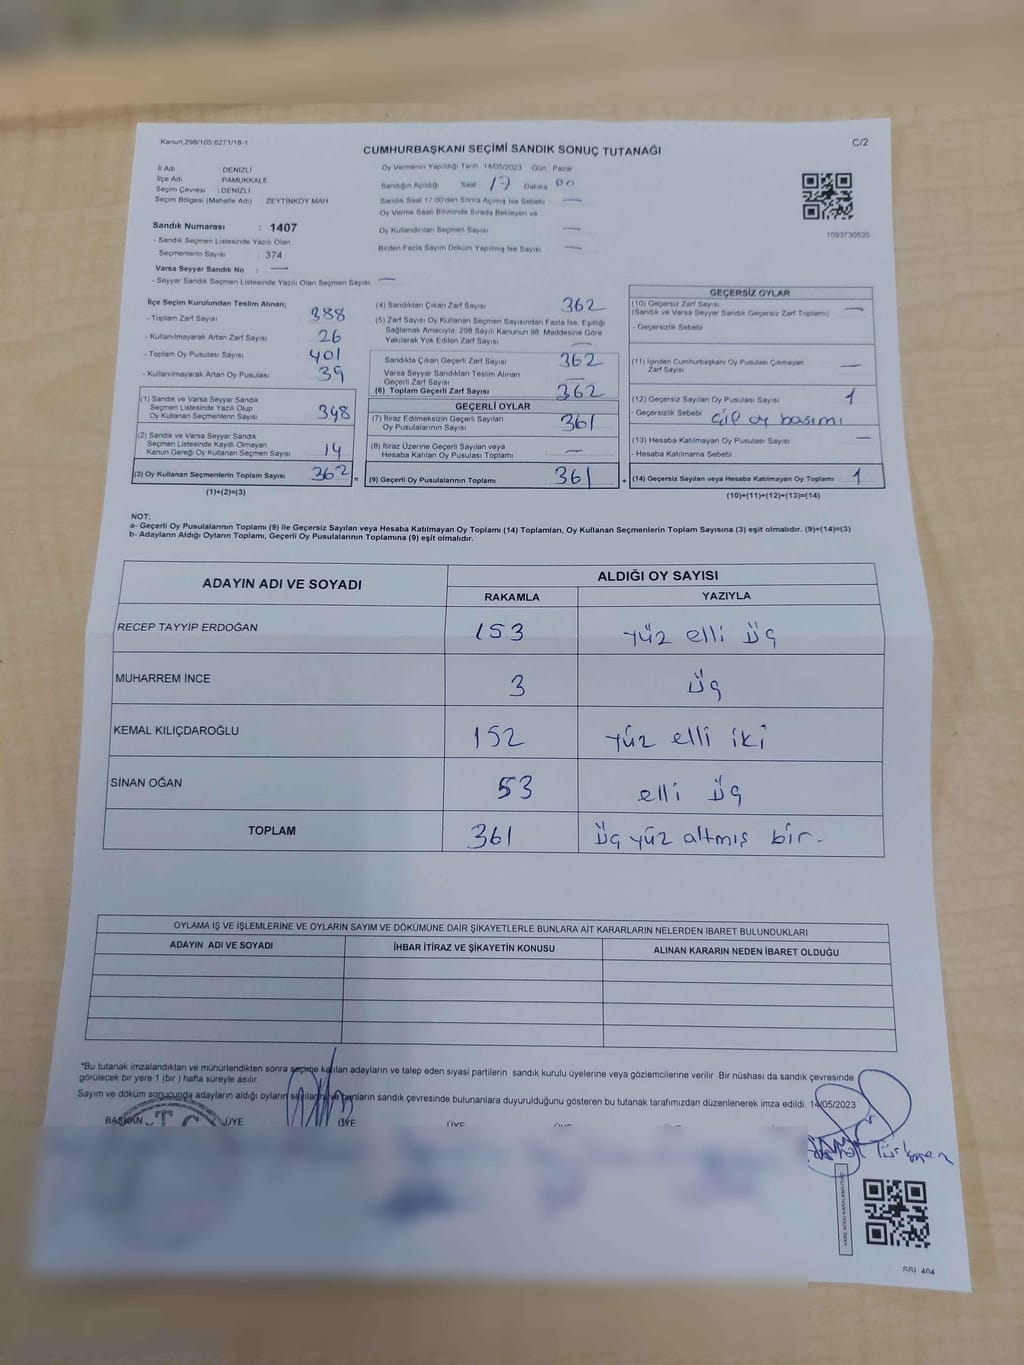 Kanun;298/105,6271/18-1
C/2
CUMHURBAŞKANI SEÇİMİ SANDIK SONUÇ TUTANAĞI
İl Adı DENİZLİ
İlçe Adı PAMUKKALE
Seçim Çevresi : DENİZLİ
Seçim Bölgesi (Mahalle Adı) ZEYTİNKÖY MAH
Oy Vermenin Yapıldığı Tarih 14/05/2023 Gün Pazar
Sandığın Açıldığı Saat 17 Dakika 00
Sandık Saat 17.00'den Sonra Açılmış İse Sebebi —
Oy Verme Saati Bitiminde Sırada Bekleyen ve
Oy Kullandırılan Seçmen Sayısı —
Birden Fazla Sayım Döküm Yapılmış İse Sayısı —
1093730535
Sandık Numarası : 1407
- Sandık Seçmen Listesinde Yazılı Olan
Seçmenlerin Sayısı : 374
Varsa Seyyar Sandık No : —
- Seyyar Sandık Seçmen Listesinde Yazılı Olan Seçmen Sayısı —
İlçe Seçim Kurulundan Teslim Alınan;
- Toplam Zarf Sayısı 388
- Kullanılmayarak Artan Zarf Sayısı 26
- Toplam Oy Pusulası Sayısı 401
- Kullanılmayarak Artan Oy Pusulası 39
(1) Sandık ve Varsa Seyyar Sandık
Seçmen Listesinde Yazılı Olup
Oy Kullanan Seçmenlerin Sayısı 348
(2) Sandık ve Varsa Seyyar Sandık
Seçmen Listesinde Kayıtlı Olmayan
Kanun Gereği Oy Kullanan Seçmen Sayısı 14
(3) Oy Kullanan Seçmenlerin Toplam Sayısı 362 =
(1)+(2)=(3)
(4) Sandıktan Çıkan Zarf Sayısı 362
(5) Zarf Sayısı Oy Kullanan Seçmen Sayısından Fazla İse, Eşitliği
Sağlamak Amacıyla; 298 Sayılı Kanunun 98. Maddesine Göre
Yakılarak Yok Edilen Zarf Sayısı —
Sandıkta Çıkan Geçerli Zarf Sayısı 362
Varsa Seyyar Sandıktan Teslim Alınan
Geçerli Zarf Sayısı —
(6) Toplam Geçerli Zarf Sayısı 362
GEÇERLİ OYLAR
(7) İtiraz Edilmeksizin Geçerli Sayılan
Oy Pusulalarının Sayısı : 361
(8) İtiraz Üzerine Geçerli Sayılan veya
Hesaba Katılan Oy Pusulası Toplamı —
(9) Geçerli Oy Pusulalarının Toplamı : 361 +
GEÇERSİZ OYLAR
(10) Geçersiz Zarf Sayısı
(Sandık ve Varsa Seyyar Sandık Geçersiz Zarf Toplamı) —
- Geçersizlik Sebebi
(11) İçinden Cumhurbaşkanı Oy Pusulası Çıkmayan
Zarf Sayısı —
(12) Geçersiz Sayılan Oy Pusulası Sayısı 1
- Geçersizlik Sebebi çift oy basımı
(13) Hesaba Katılmayan Oy Pusulası Sayısı —
- Hesaba Katılmama Sebebi
(14) Geçersiz Sayılan veya Hesaba Katılmayan Oy Toplamı 1
(10)+(11)+(12)+(13)=(14)
NOT:
a- Geçerli Oy Pusulalarının Toplamı (9) ile Geçersiz Sayılan veya Hesaba Katılmayan Oy Toplamı (14) Toplamları, Oy Kullanan Seçmenlerin Toplam Sayısına (3) eşit olmalıdır. (9)+(14)=(3)
b- Adayların Aldığı Oyların Toplamı, Geçerli Oy Pusulalarının Toplamına (9) eşit olmalıdır.
ADAYIN ADI VE SOYADI ALDIĞI OY SAYISI
RAKAMLA YAZIYLA
RECEP TAYYİP ERDOĞAN 153 yüz elli üç
MUHARREM İNCE 3 üç
KEMAL KILIÇDAROĞLU 152 yüz elli iki
SİNAN OĞAN 53 elli üç
TOPLAM 361 üç yüz altmış bir.
OYLAMA İŞ VE İŞLEMLERİNE VE OYLARIN SAYIM VE DÖKÜMÜNE DAİR ŞİKAYETLERLE BUNLARA AİT KARARLARIN NELERDEN İBARET BULUNDUKLARI
ADAYIN ADI VE SOYADI İHBAR İTİRAZ VE ŞİKAYETİN KONUSU ALINAN KARARIN NEDEN İBARET OLDUĞU
*Bu tutanak imzalandıktan ve mühürlendikten sonra seçime katılan adayların ve talep eden siyasi partilerin sandık kurulu üyelerine veya gözlemcilerine verilir. Bir nüshası da sandık çevresinde
görülecek bir yere 1 (bir) hafta süreyle asılır.
Sayım ve döküm sonucunda adayların aldığı oyların sayılarını ve bunların sandık çevresinde bulunanlara duyurulduğunu gösteren bu tutanak tarafımızdan düzenlenerek imza edildi. 14/05/2023
BAŞKAN ÜYE ÜYE ÜYE
T.C.
Türkmen